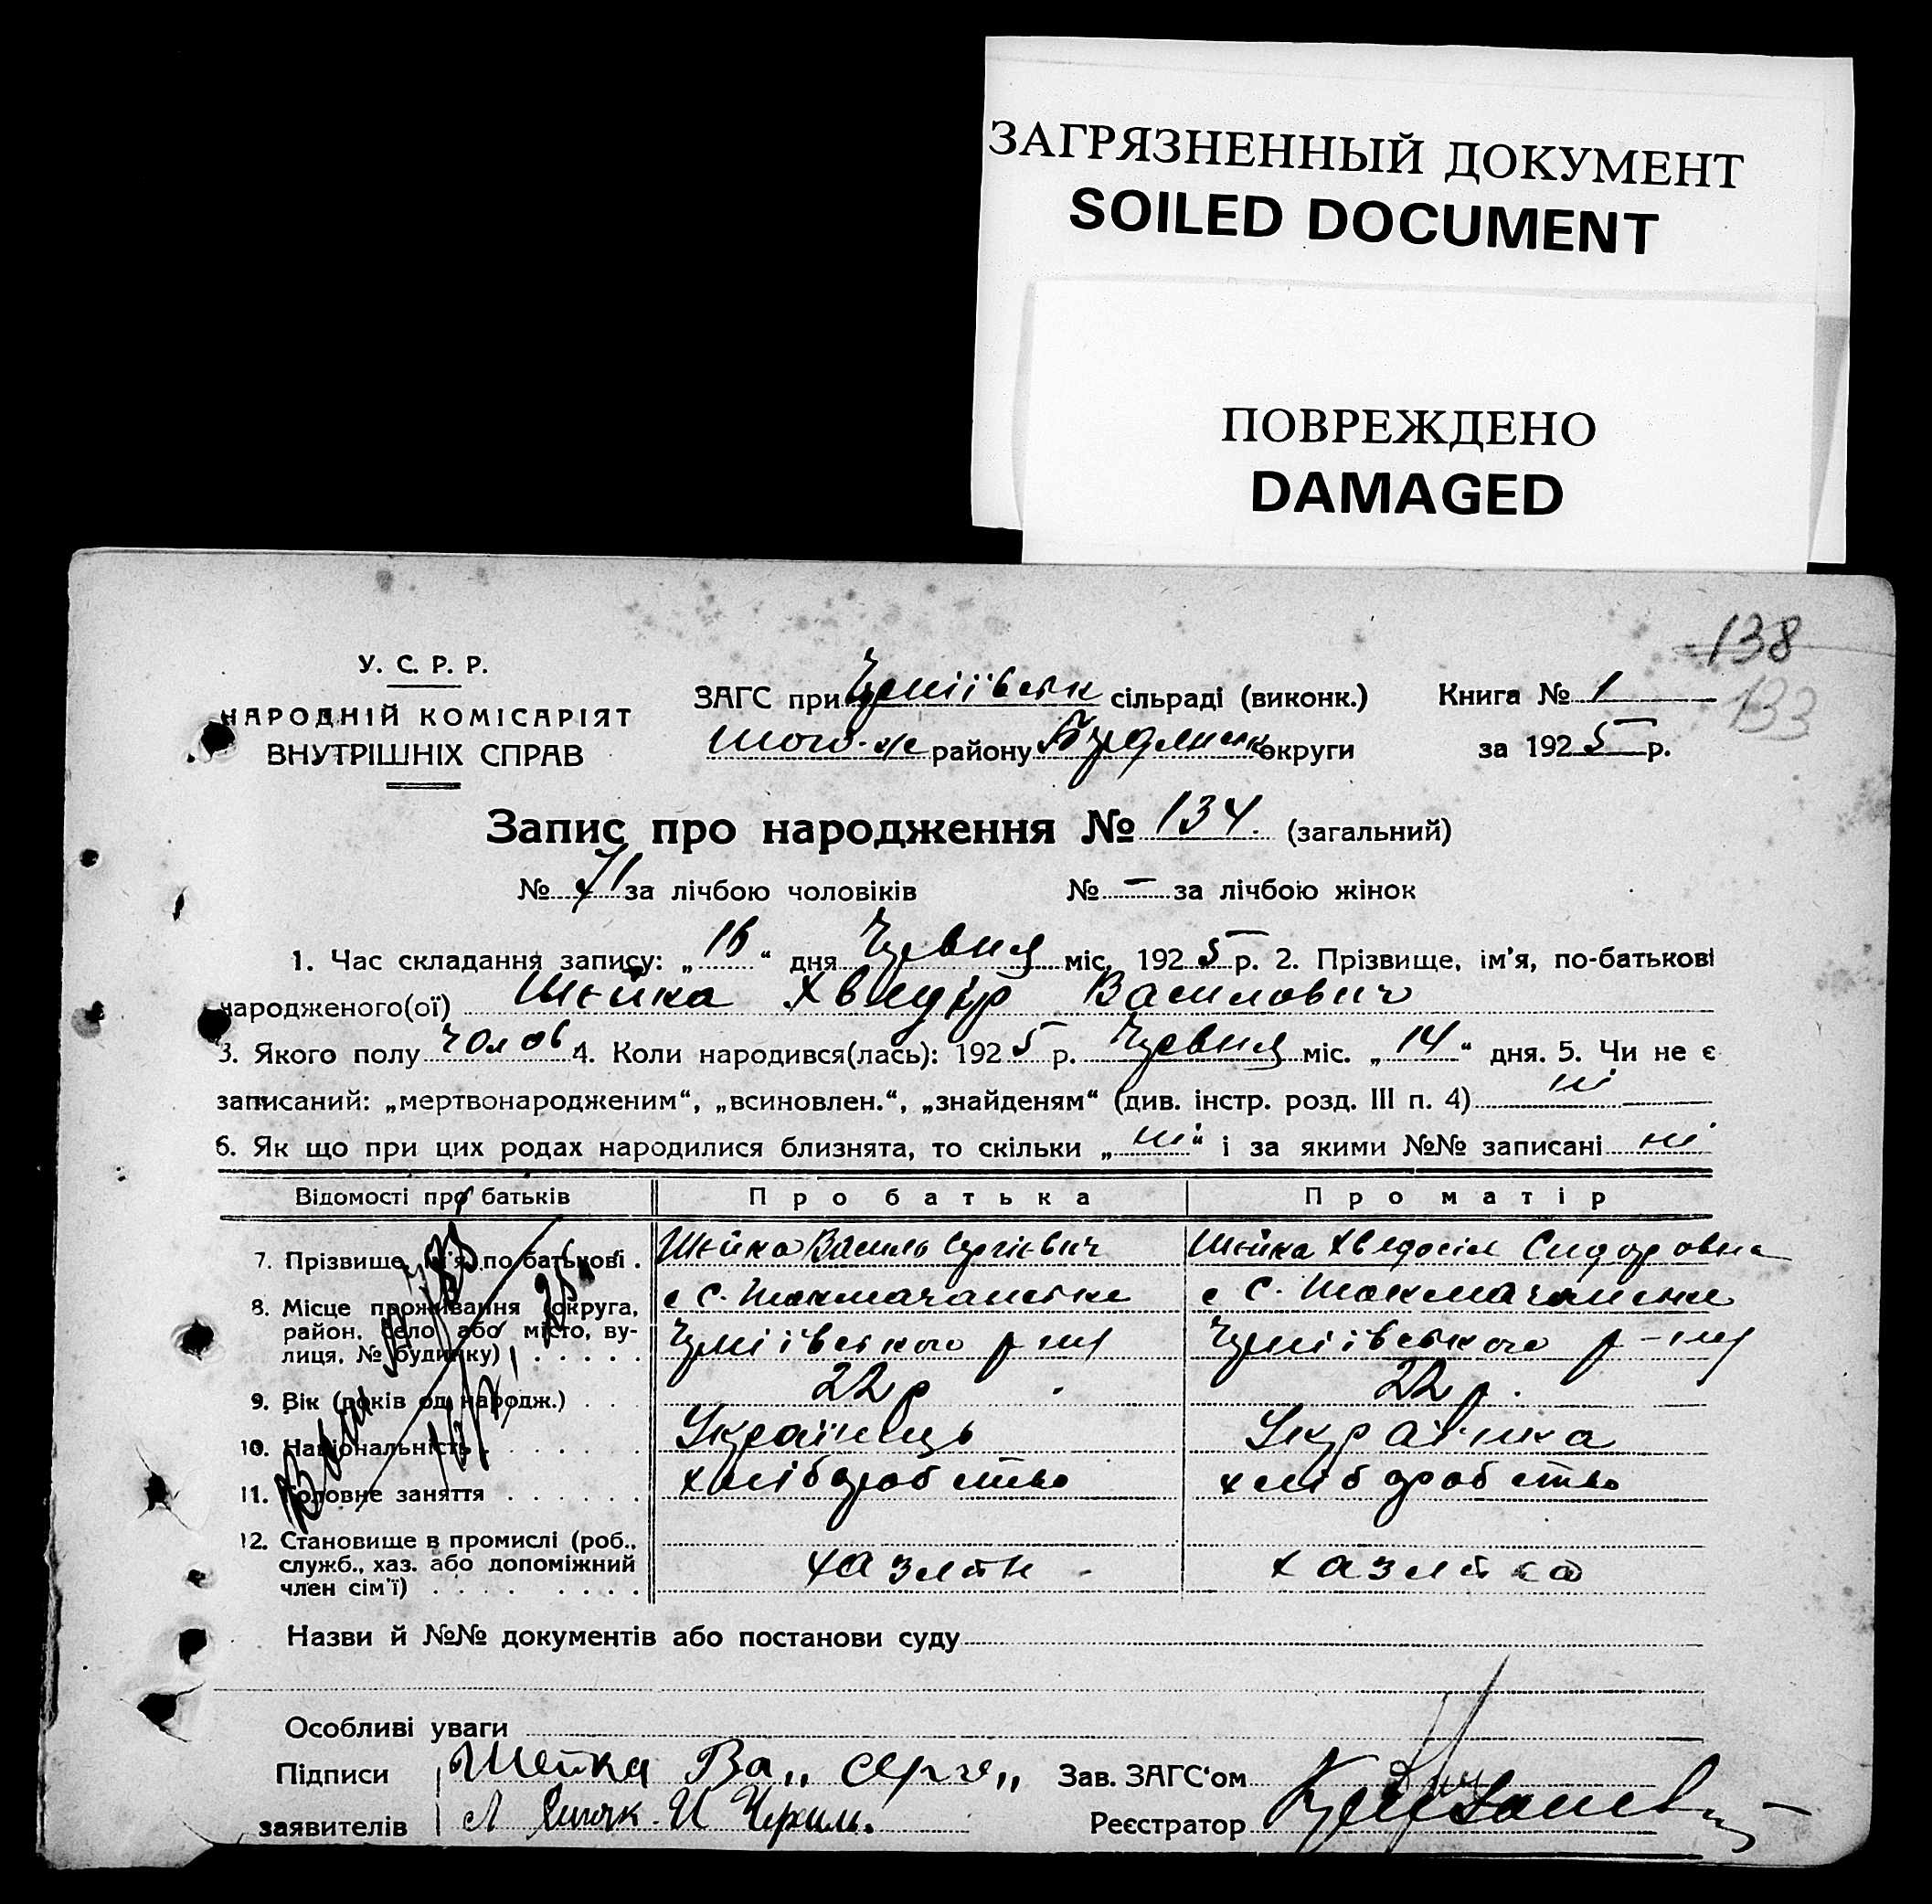 ЗАГРЯЗНЕННЫЙ ДОКУМЕНТ
SOILED DOCUMENT
ПОВРЕЖДЕНО
DAMAGED
138
133
У. С. Р. Р.
НАРОДНІЙ КОМІСАРІЯТ
ВНУТРІШНІХ СПРАВ
ЗАГС при сільраді (виконк.) Книга № 1
того-же району округи за 1925 р.
Запис про народження № 134. (загальний)
№ 71 за лічбою чоловіків № – за лічбою жінок
1. Час складання запису: „16“ дня Червня міс. 1925 р. 2. Прізвище, ім'я, по-батькові
народженого(ої) Шейка Хведір Василович
3. Якого полу чолов 4. Коли народився(лась): 1925 р. Червня міс. „14“ дня. 5. Чи не є
записаний: „мертвонародженим“, „всиновлен.“, „знайденям“ (див. інстр. розд. III п. 4) ні
6. Як що при цих родах народилися близнята, то скільки „ні“ і за якими №№ записані ні
Відомості про батьків Про батька Про матір
7. Прізвище, ім'я, по батькові . Шейка Василь Сергієвич Шейка Хведосія Сидоровна
8. Місце проживання (округа, с. с.
район, село або місто, ву-
лиця, № будинку) . . . . .
9. Вік (років од народж.) . . . 22 р 22 р.
10. Національність . . . . . . Українець Українка
11. Головне заняття . . . . . . хліборобство хліборобство
12. Становище в промислі (роб.,
служб., хаз. або допоміжний хазяїн хазяйка
член сім'ї) . . . . . . . . .
Назви й №№ документів або постанови суду
Особливі уваги
Підписи Шейка Ва„ Серге„ Зав. ЗАГС'ом
заявителів Реєстратор